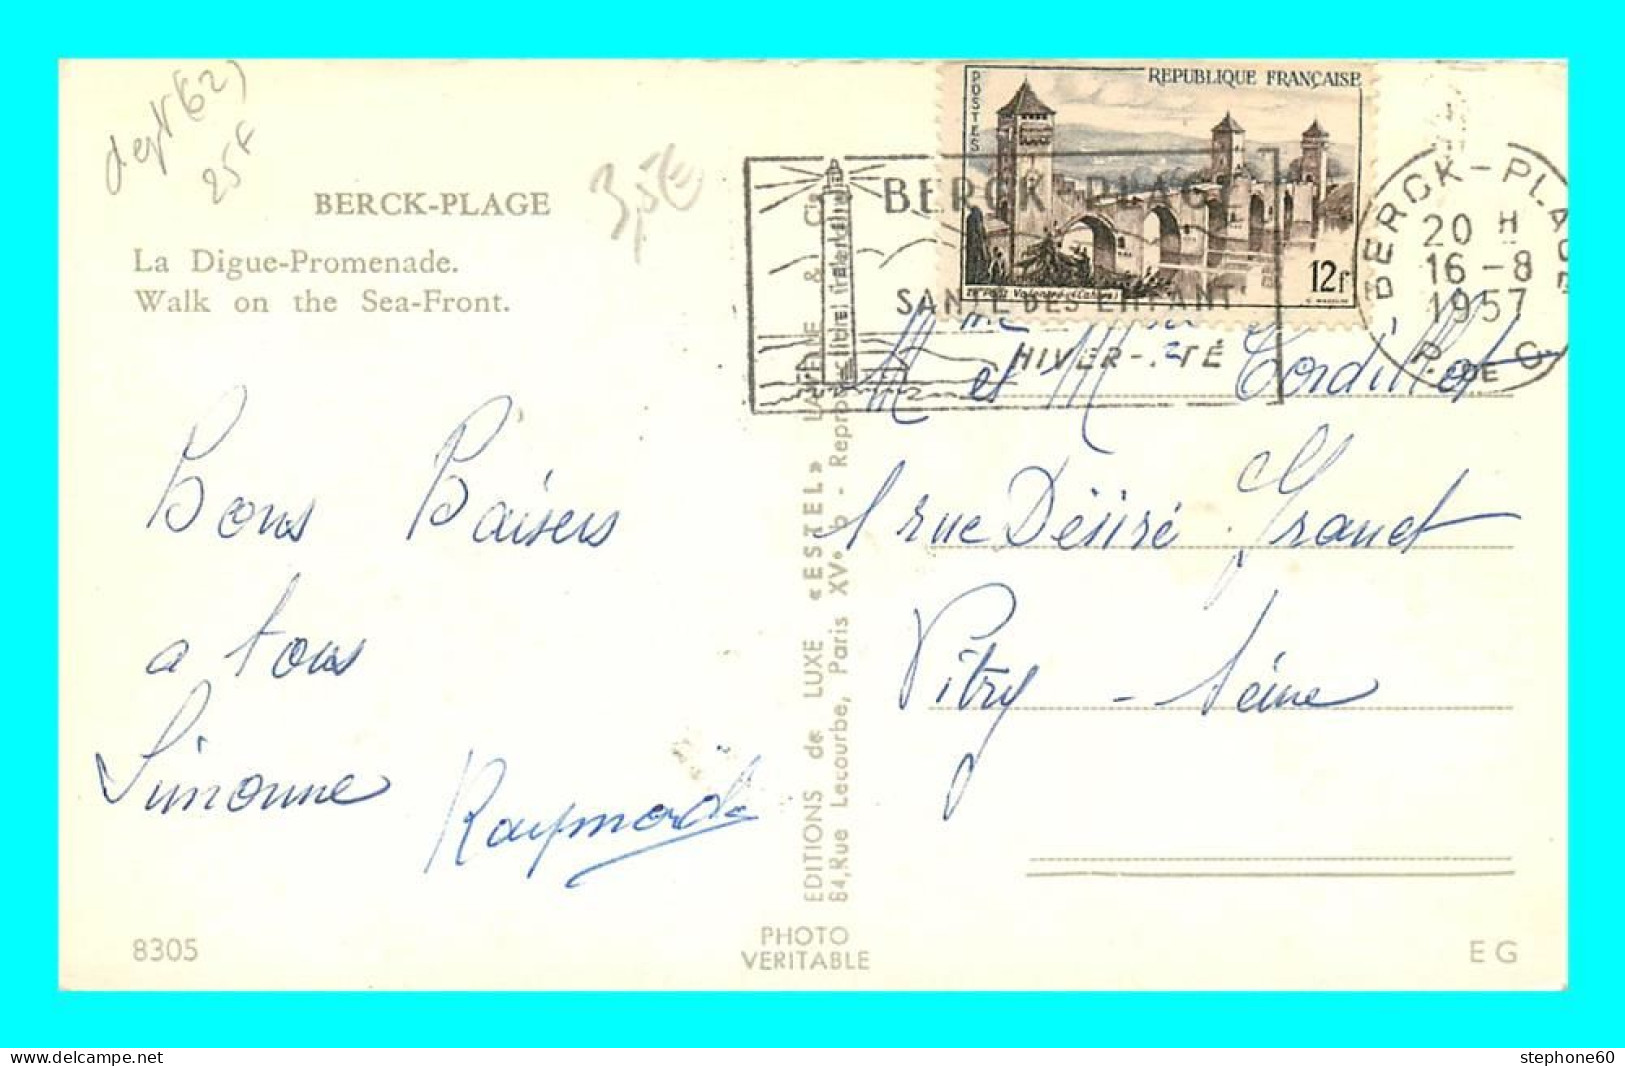 dept (62)
25F
3,5€
BERCK-PLAGE
La Digue-Promenade.
Walk on the Sea-Front.
Bons Baisers
a tous
Simonne
Raymonde
8305
PHOTO
VERITABLE
EDITIONS de LUXE «ESTEL»
84, Rue Lecourbe, Paris XVº
REPUBLIQUE FRANÇAISE
POSTES
12f
BERCK PLAG
SANTE DES ENFANT
HIVER-ÉTÉ
BERCK-PLAGE
20 H
16-8
1957
P. DE C.
M et Mme Cordillot
1 rue Désiré Granet
Vitry - Seine
E G
stephone60